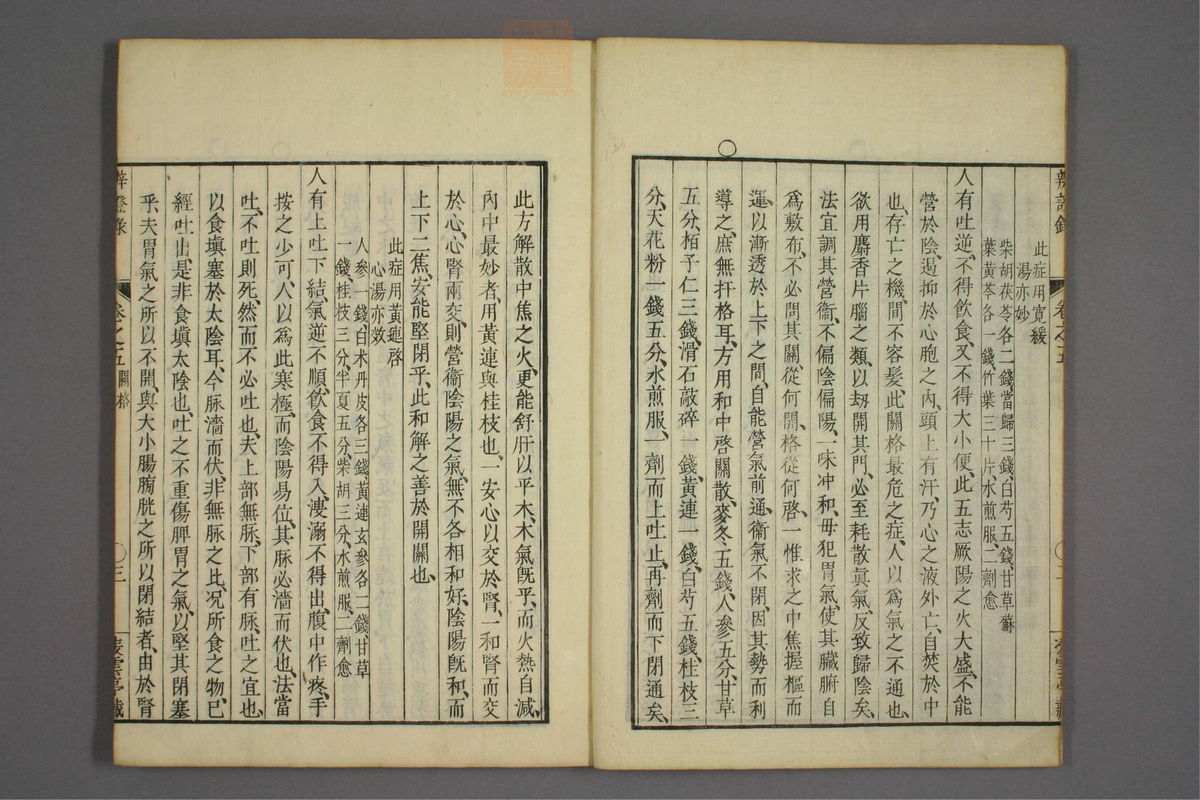 卷之五
此症用寬緩
湯亦妙
柴胡茯苓各二錢當歸三錢白芍五錢甘草蘇
葉黃芩各一錢竹葉三十片水煎服二劑愈
人有吐逆、不得飲食、又不得大小便、此五志厥陽之火大盛、不能
營於陰、遏抑於心胞之內、頭上有汗、乃心之液外亡、自焚於中
也、存亡之機、間不容髮、此關格最危之症、人以爲氣之不通也、
欲用麝香片腦之類、以刼開其門、必至耗散眞氣、反致歸陰矣、
法宜調其營衞、不偏陰偏陽、一味冲和、毋犯胃氣、使其臟腑自
爲敷布、不必問其關從何開、格從何啓、一惟求之中焦握樞而
運、以漸透於上下之間、自能營氣前通、衞氣不閉、因其勢而利
導之、庶無扞格耳、方用和中啓關散、麥冬五錢、人參五分、甘草
五分、栢子仁三錢、滑石敲碎一錢、黃連一錢、白芍五錢、桂枝三
分、天花粉一錢五分、水煎服、一劑而上吐止、再劑而下閉通矣、
此方解散中焦之火、更能舒肝以平木、木氣旣平、而火熱自減、
內中最妙者、用黃連與桂枝也、一安心以交於腎、一和腎而交
於心、心腎兩交、則營衞陰陽之氣、無不各相和好、陰陽旣和、而
上下二焦、安能堅閉乎、此和解之善於開關也、
此症用黃連啓
心湯亦效
人參一錢白术丹皮各三錢黃連玄參各二錢甘草
一錢桂枝三分半夏五分柴胡三分水煎服二劑愈
人有上吐下結、氣逆不順、飲食不得入、溲溺不得出、腹中作疼、手
按之少可、人以爲此寒極、而陰陽易位、其脉必濇而伏也、法當
吐、不吐則死、然而不必吐也、夫上部無脉、下部有脉、吐之宜也、
以食塡塞於太陰耳、今脉濇而伏、非無脉之比、况所食之物、已
經吐出、是非食塡太陰也、吐之不重傷脾胃之氣、以堅其閉塞
乎、夫胃氣之所以不開、與大小腸膀胱之所以閉結者、由於腎
卷之五 關格
三